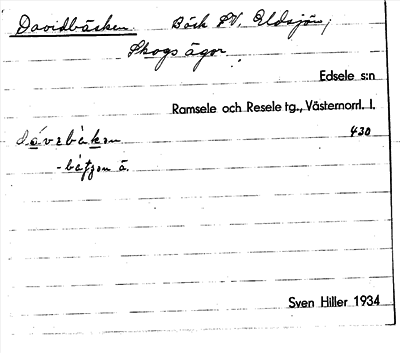 Davidbäcken. Bäck SV. Uldsjön,
Skogs ägor.
Edsele s:n
Ramsele och Resele tg., Västernorrl. l.
dȧvebȧken 430
-bȧtjen ä.
Sven Hiller 1934